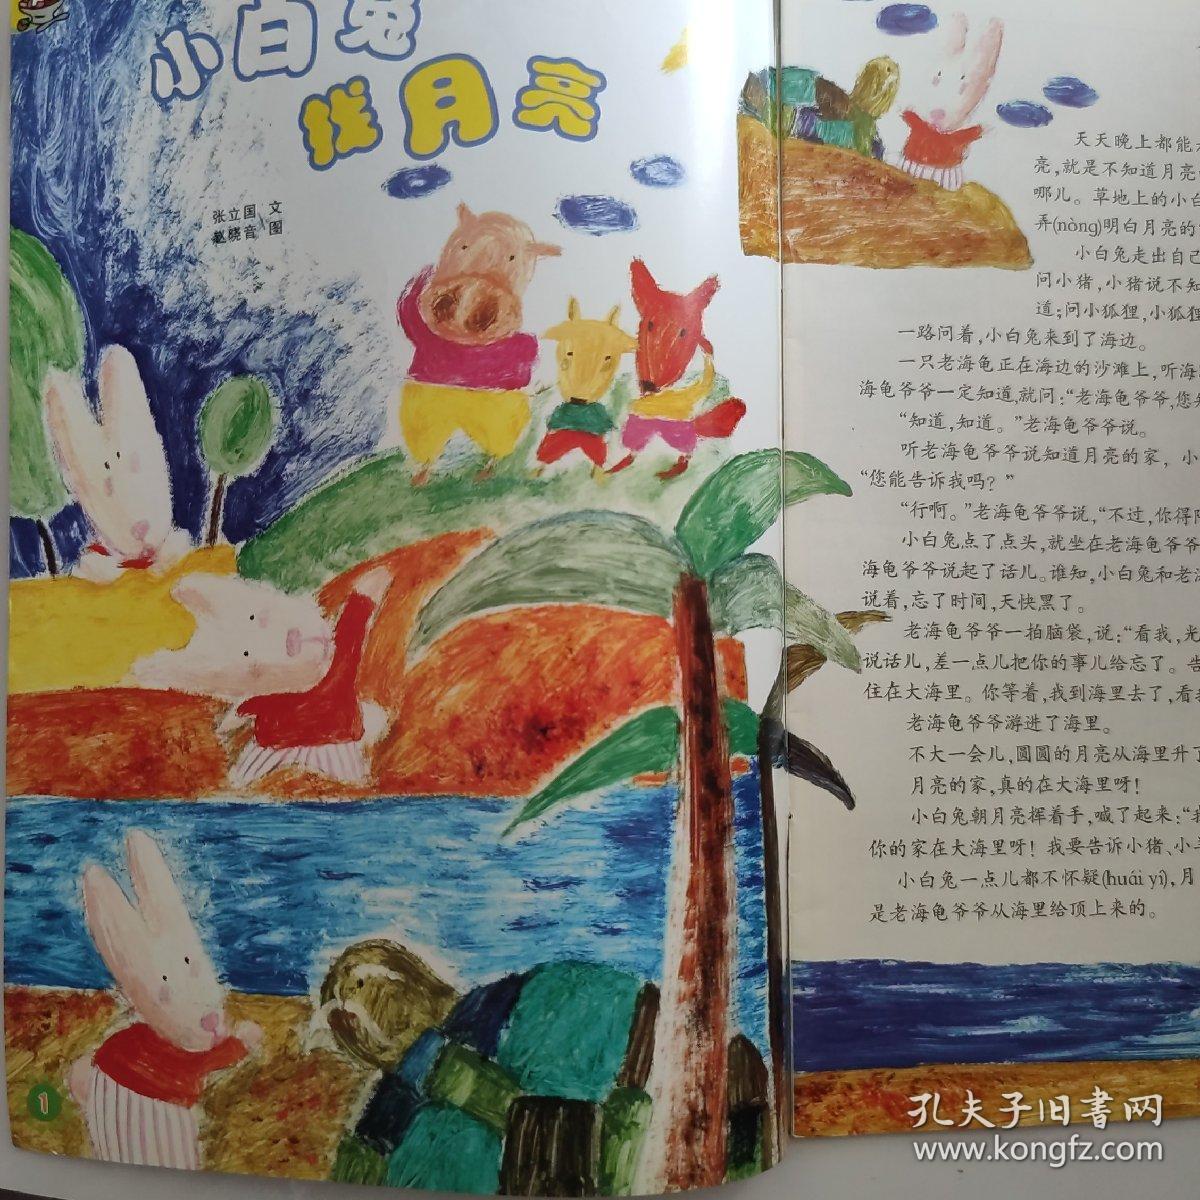 小白兔
找月亮
张立国 文
赵晓音 图
天天晚上都能
亮,就是不知道月亮
哪儿。草地上的小白
弄(nòng)明白月亮的
小白兔走出自己
问小猪,小猪说不知
道;问小狐狸,小狐狸
一路问着,小白兔来到了海边。
一只老海龟正在海边的沙滩上,听海
海龟爷爷一定知道,就问:“老海龟爷爷,您
“知道,知道。”老海龟爷爷说。
听老海龟爷爷说知道月亮的家,小
“您能告诉我吗?”
“行啊。”老海龟爷爷说,“不过,你得
小白兔点了点头,就坐在老海龟爷爷
海龟爷爷说起了话儿。谁知,小白兔和老海
说着,忘了时间,天快黑了。
老海龟爷爷一拍脑袋,说:“看我,光
说话儿,差一点儿把你的事儿给忘了。告
住在大海里。你等着,我到海里去了,看
老海龟爷爷游进了海里。
不大一会儿,圆圆的月亮从海里升了
月亮的家,真的在大海里呀!
小白兔朝月亮挥着手,喊了起来:“我
你的家在大海里呀!我要告诉小猪、小
小白兔一点儿都不怀疑(huái yí),月
是老海龟爷爷从海里给顶上来的。
1
孔夫子旧书网
www.kongfz.com